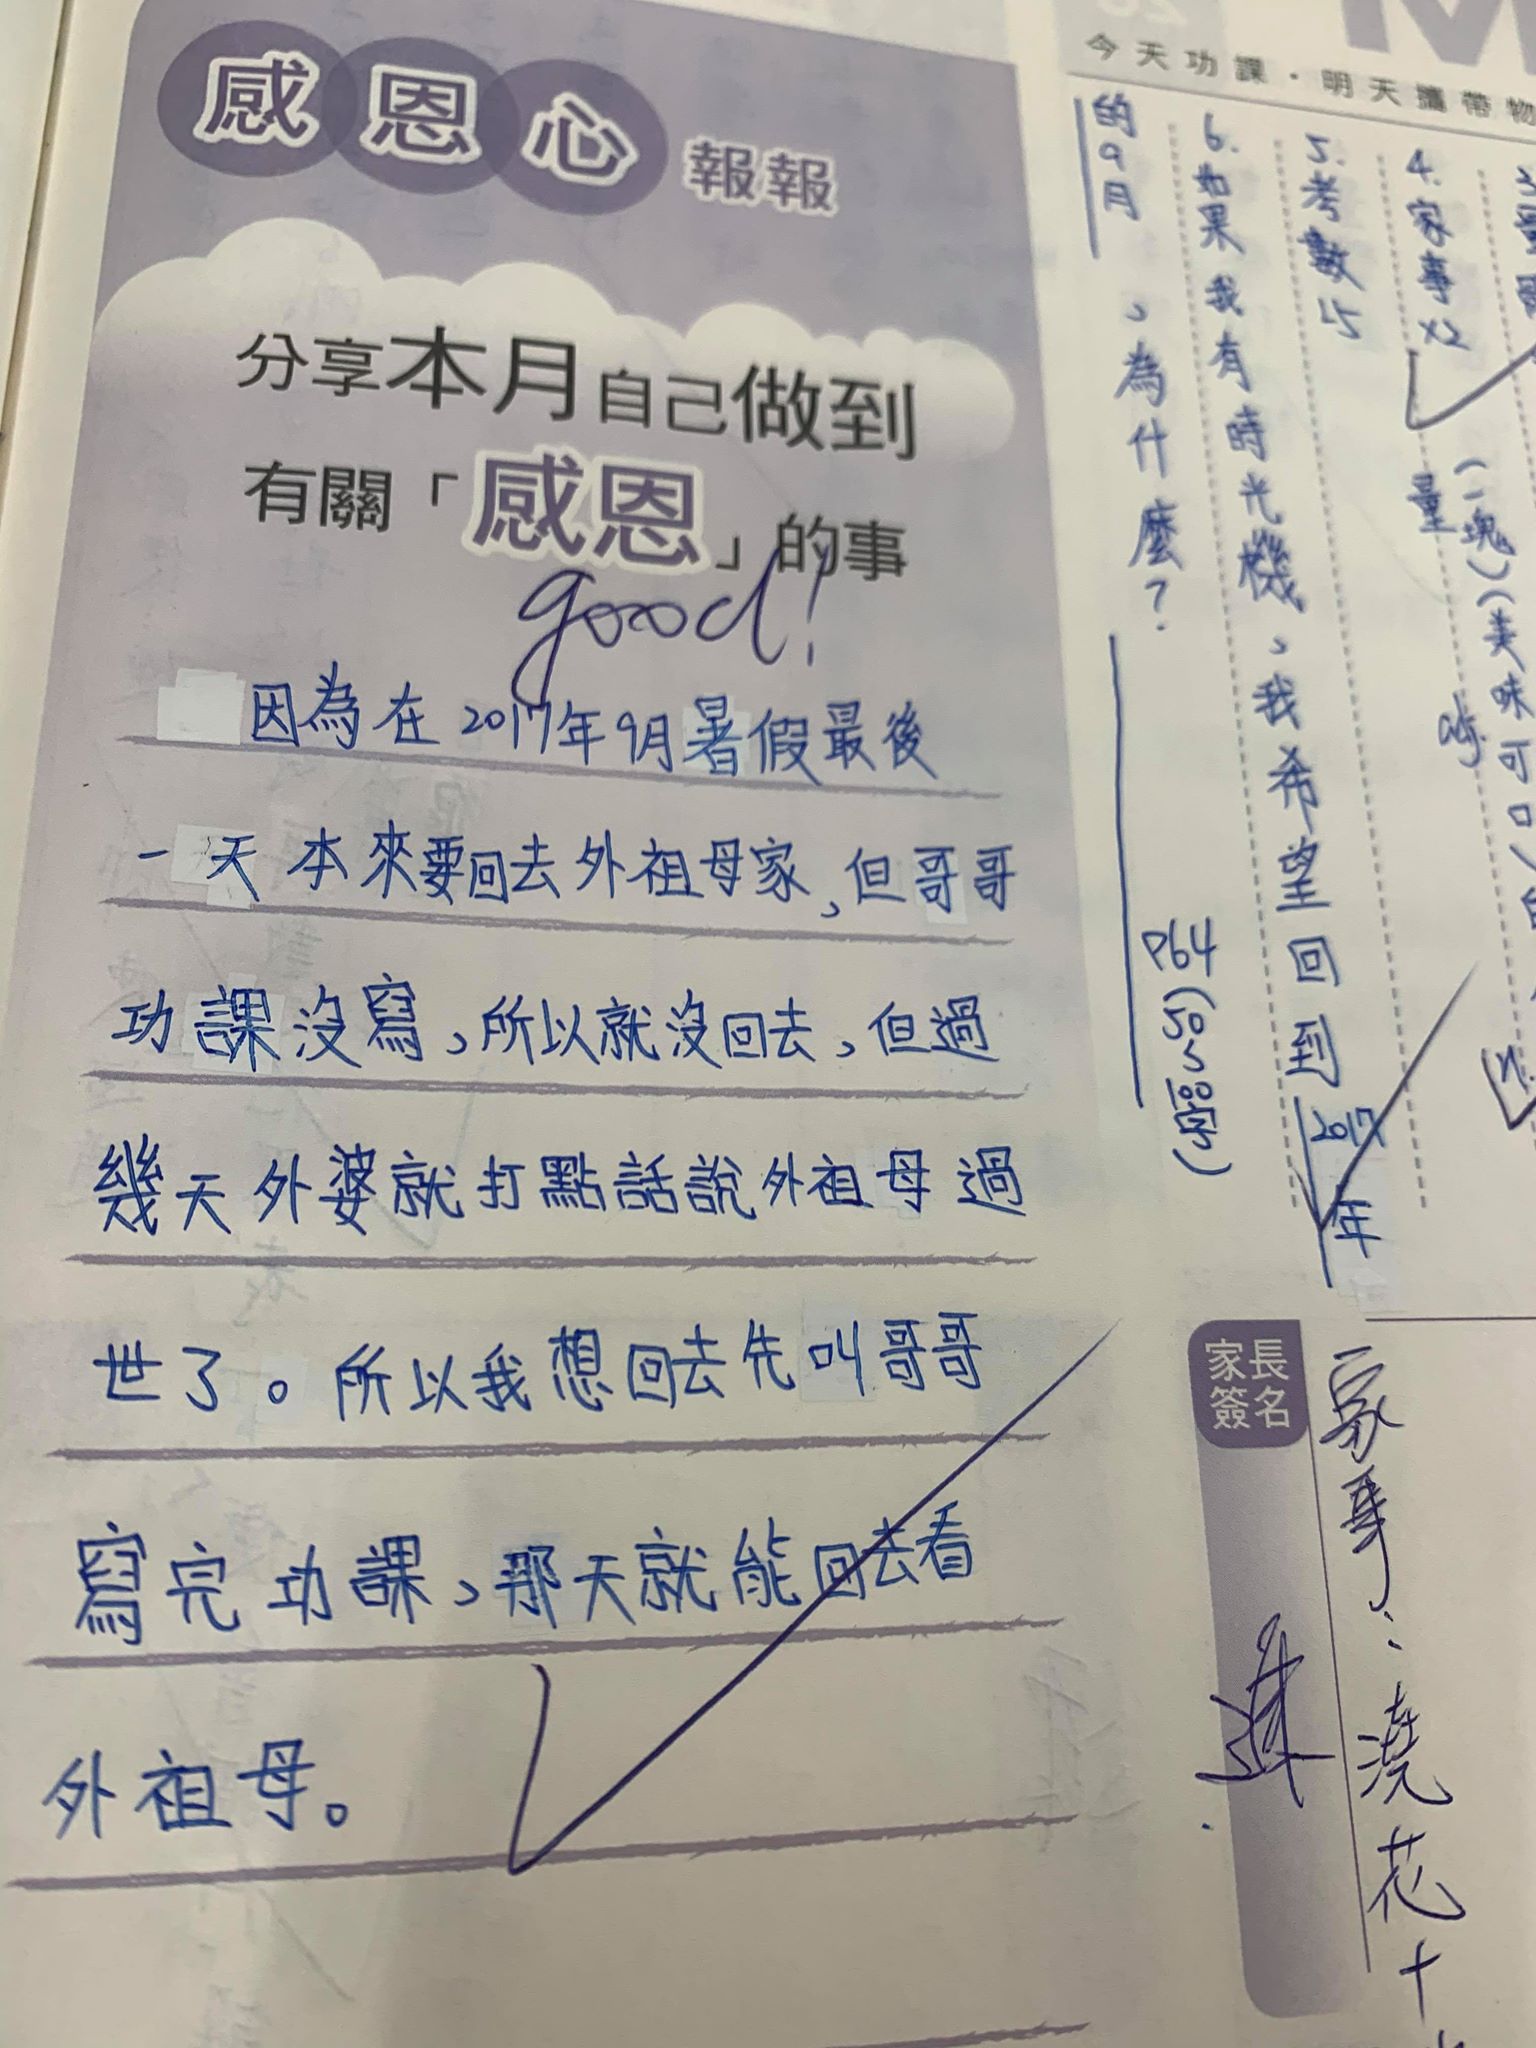 感恩心報報
分享本月自己做到
有關「感恩」的事
good!
因為在2017年9月暑假最後
一天本來要回去外祖母家,但哥哥
功課沒寫、所以就沒回去、但過
幾天外婆就打點話說外祖母過
世了。所以我想回去先叫哥哥
寫完功課、那天就能回去看
外祖母。
今天功課・明天攜帶物
4.家事x2
(一塊)(美味可口)
量
5.考數15
6.如果我有時光機、我希望回到2017年
的9月、為什麼?
P64(50~100字)
家長簽名
家事:澆花+